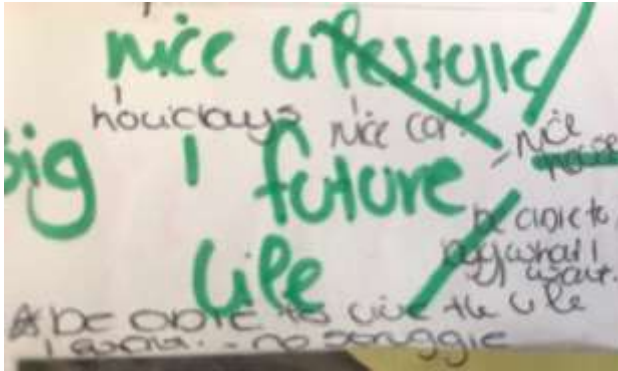 nice lifestyle
holidays nice car
- nice
house
Big 1 future
be able to
buy what I
want.
life
be able to live the life
I want. - no struggle